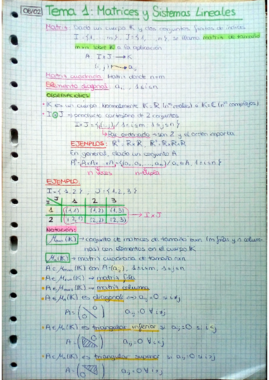 Tema 1: Matrices y Sistemas Lineales
Matriz: Dado un cuerpo K y dos conjuntos finitos de índices
I = {1, ..., m} J = {1, ..., n}, se llama matriz de tamaño
mxn sobre K a la aplicación
A: I×J → K
(i, j) → aij
Matriz cuadrada: Matriz donde m=n
Elemento diagonal: aii, 1≤i≤n
Observaciones:
· K es un cuerpo. Normalmente K=R (nº reales) o K=C (nº complejos)
· I×J = producto cartesiano de 2 conjuntos
I×J = {(i,j) / 1≤i≤m, 1≤j≤n}
EJEMPLOS: R² = R×R R³ = R×R×R
En general, dado un conjunto A
n veces n-upla
EJEMPLO:
I = {1, 2} J = {1, 2, 3}
I\J 1 2 3
1 (1,1) (1,2) (1,3)
2 (2,1) (2,2) (2,3) → I×J
Notación:
Mmxn(K) → conjunto de matrices de tamaño mxn (m filas y n colum-
nas) con elementos en el cuerpo K.
Mn(K) → matriz cuadrada de tamaño nxn
· A∈Mmxn(K) con A=(aij), 1≤i≤m, 1≤j≤n
· A∈M1xn(K) → matriz fila
· A∈Mmx1(K) → matriz columna
· A∈Mn(K) es diagonal ⇔ aij=0 ∀i≠j
A = aij=0 ∀i≠j
· A∈Mn(K) es triangular inferior si aij=0 si i<j
A = aij=0 ∀i<j
· A∈Mn(K) es triangular superior si aij=0 si i>j
A = aij=0 ∀i>j